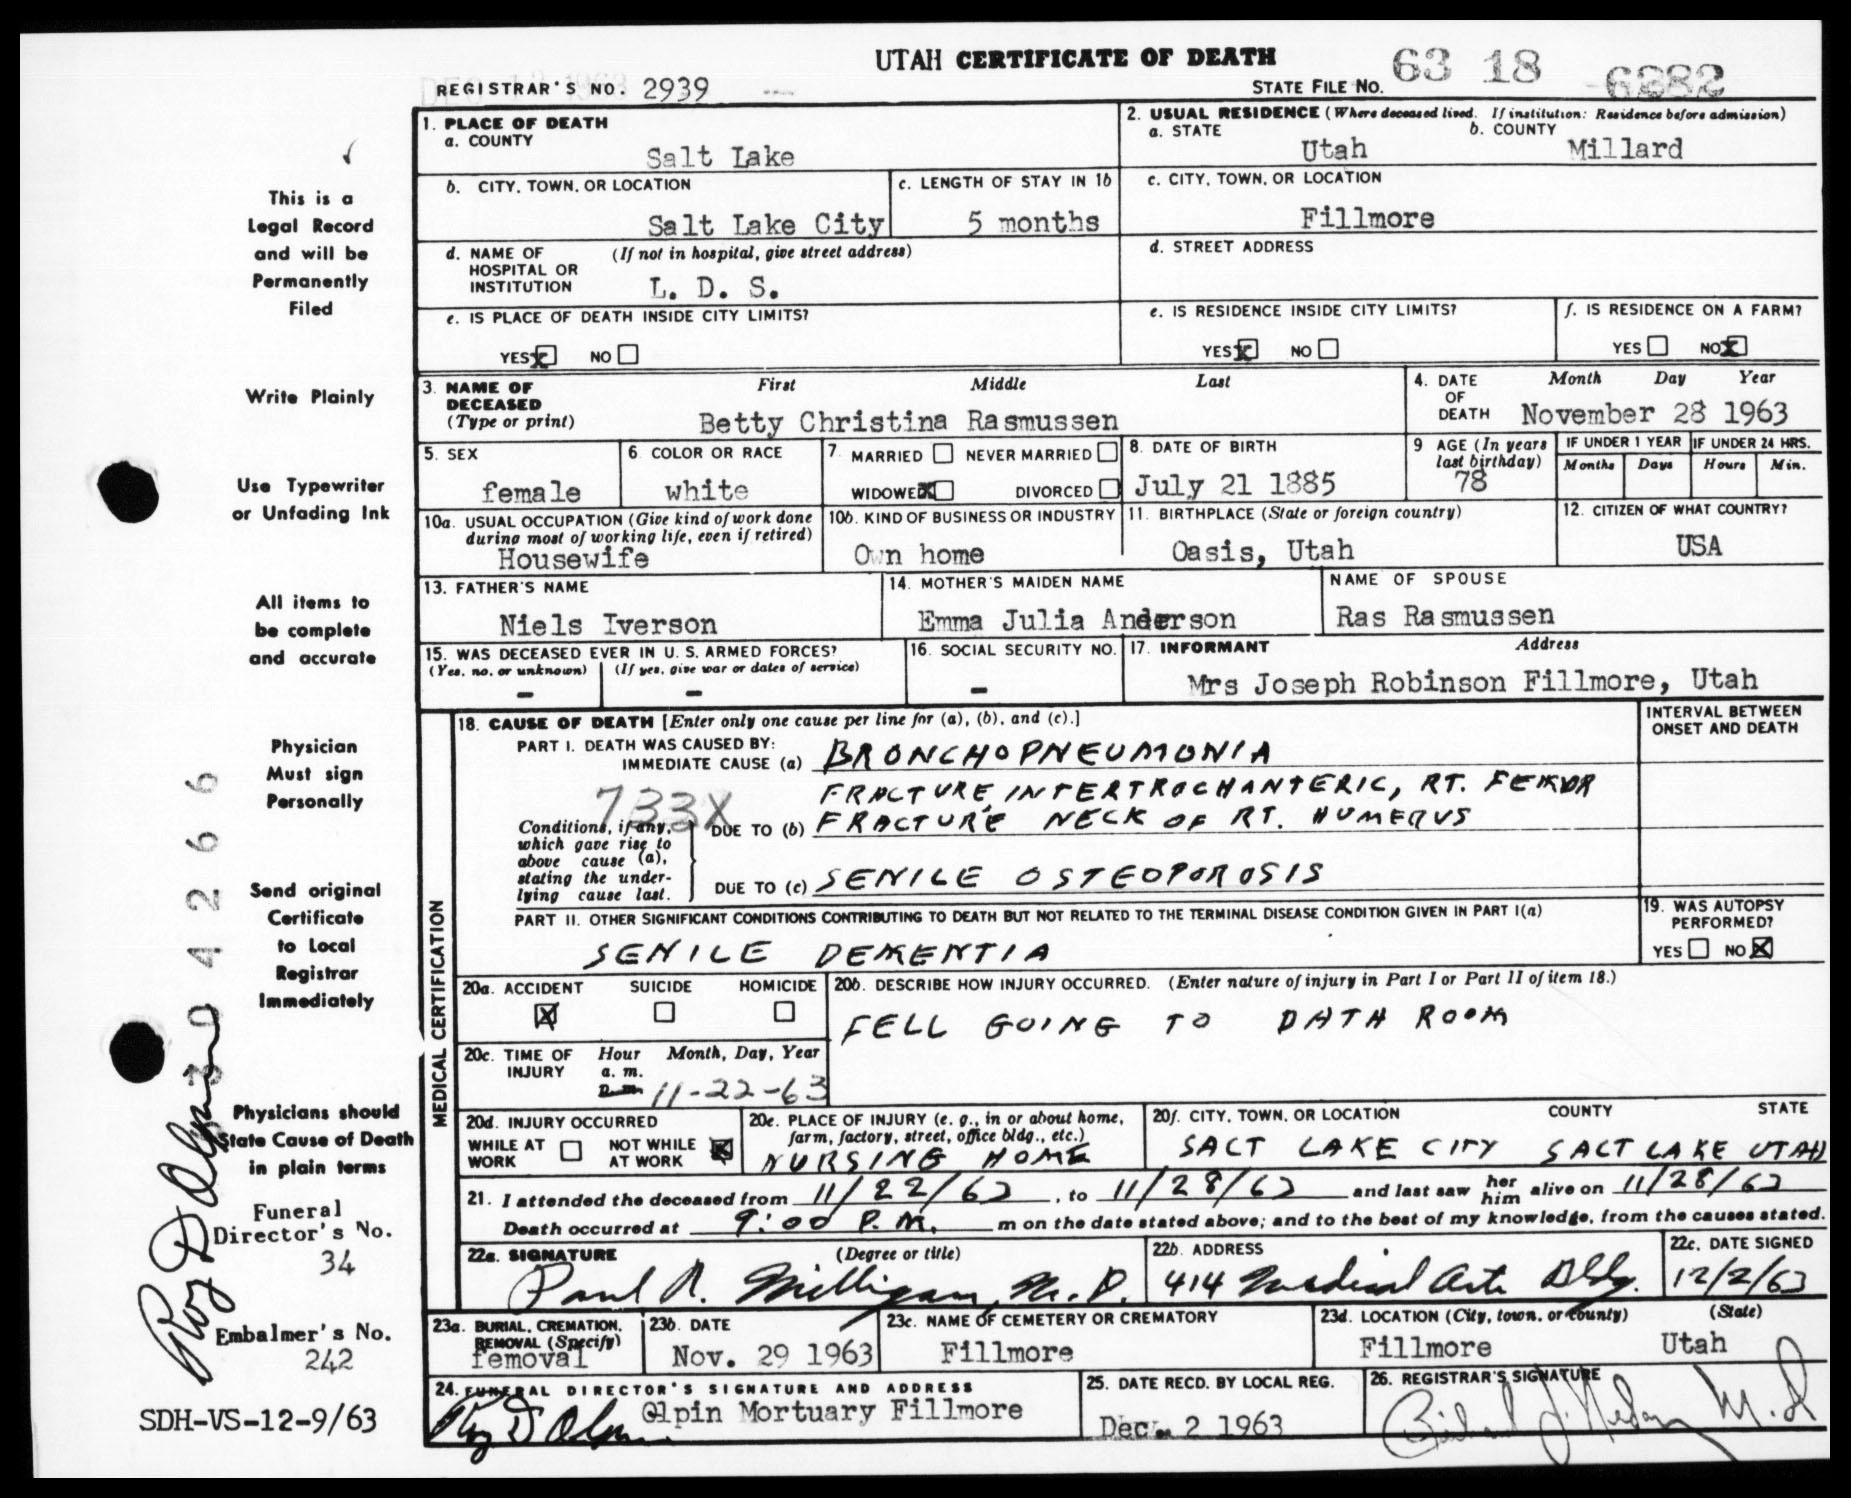 UTAH CERTIFICATE OF DEATH
DEC 12 1963
REGISTRAR'S NO. 2939
STATE FILE NO. 63 18 6882
This is a
Legal Record
and will be
Permanently
Filed
Write Plainly
Use Typewriter
or Unfading Ink
All items to
be complete
and accurate
Physician
Must sign
Personally
Send original
Certificate
to Local
Registrar
Immediately
Physicians should
State Cause of Death
in plain terms
Funeral
Director's No.
34
Embalmer's No.
242
SDH-VS-12-9/63
304266
Roy D Olpin
1. PLACE OF DEATH
a. COUNTY
Salt Lake
2. USUAL RESIDENCE (Where deceased lived. If institution: Residence before admission)
a. STATE b. COUNTY
Utah Millard
b. CITY, TOWN, OR LOCATION
Salt Lake City
c. LENGTH OF STAY IN 1b
5 months
c. CITY, TOWN, OR LOCATION
Fillmore
d. NAME OF (If not in hospital, give street address)
HOSPITAL OR
INSTITUTION
L. D. S.
d. STREET ADDRESS
e. IS PLACE OF DEATH INSIDE CITY LIMITS?
YES X NO
e. IS RESIDENCE INSIDE CITY LIMITS?
YES X NO
f. IS RESIDENCE ON A FARM?
YES NO X
3. NAME OF First Middle Last
DECEASED
(Type or print)
Betty Christina Rasmussen
4. DATE Month Day Year
OF
DEATH
November 28 1963
5. SEX
female
6. COLOR OR RACE
white
7. MARRIED NEVER MARRIED
WIDOWED X DIVORCED
8. DATE OF BIRTH
July 21 1885
9 AGE (In years
last birthday)
78
IF UNDER 1 YEAR IF UNDER 24 HRS.
Months Days Hours Min.
10a. USUAL OCCUPATION (Give kind of work done
during most of working life, even if retired)
Housewife
10b. KIND OF BUSINESS OR INDUSTRY
Own home
11. BIRTHPLACE (State or foreign country)
Oasis, Utah
12. CITIZEN OF WHAT COUNTRY?
USA
13. FATHER'S NAME
Niels Iverson
14. MOTHER'S MAIDEN NAME
Emma Julia Anderson
NAME OF SPOUSE
Ras Rasmussen
15. WAS DECEASED EVER IN U. S. ARMED FORCES?
(Yes, no, or unknown) (If yes, give war or dates of service)
- -
16. SOCIAL SECURITY NO.
-
17. INFORMANT Address
Mrs Joseph Robinson Fillmore, Utah
MEDICAL CERTIFICATION
18. CAUSE OF DEATH [Enter only one cause per line for (a), (b), and (c).]
INTERVAL BETWEEN
ONSET AND DEATH
PART I. DEATH WAS CAUSED BY:
IMMEDIATE CAUSE (a) BRONCHOPNEUMONIA
733X
FRACTURE, INTERTROCHANTERIC, RT. FEMUR
DUE TO (b) FRACTURE NECK OF RT. HUMERUS
Conditions, if any,
which gave rise to
above cause (a),
stating the under-
lying cause last.
DUE TO (c) SENILE OSTEOPOROSIS
PART II. OTHER SIGNIFICANT CONDITIONS CONTRIBUTING TO DEATH BUT NOT RELATED TO THE TERMINAL DISEASE CONDITION GIVEN IN PART I(a)
SENILE DEMENTIA
19. WAS AUTOPSY
PERFORMED?
YES NO X
20a. ACCIDENT SUICIDE HOMICIDE
X
20b. DESCRIBE HOW INJURY OCCURRED. (Enter nature of injury in Part I or Part II of item 18.)
FELL GOING TO BATH ROOM
20c. TIME OF Hour Month, Day, Year
INJURY a. m.
p. m. 11-22-63
20d. INJURY OCCURRED
WHILE AT NOT WHILE
WORK AT WORK X
20e. PLACE OF INJURY (e. g., in or about home,
farm, factory, street, office bldg., etc.)
NURSING HOME
20f. CITY, TOWN, OR LOCATION COUNTY STATE
SALT LAKE CITY SALT LAKE UTAH
21. I attended the deceased from 11/22/63, to 11/28/63 and last saw her him alive on 11/28/63
Death occurred at 9:00 P.M. m on the date stated above; and to the best of my knowledge, from the causes stated.
22a. SIGNATURE (Degree or title)
Paul A. Milligan, M.D.
22b. ADDRESS
414 Medical Arts Bldg.
22c. DATE SIGNED
12/2/63
23a. BURIAL, CREMATION,
REMOVAL (Specify)
removal
23b. DATE
Nov. 29 1963
23c. NAME OF CEMETERY OR CREMATORY
Fillmore
23d. LOCATION (City, town, or county) (State)
Fillmore Utah
24. FUNERAL DIRECTOR'S SIGNATURE AND ADDRESS
Roy D Olpin Olpin Mortuary Fillmore
25. DATE RECD. BY LOCAL REG.
Dec. 2 1963
26. REGISTRAR'S SIGNATURE
M.D